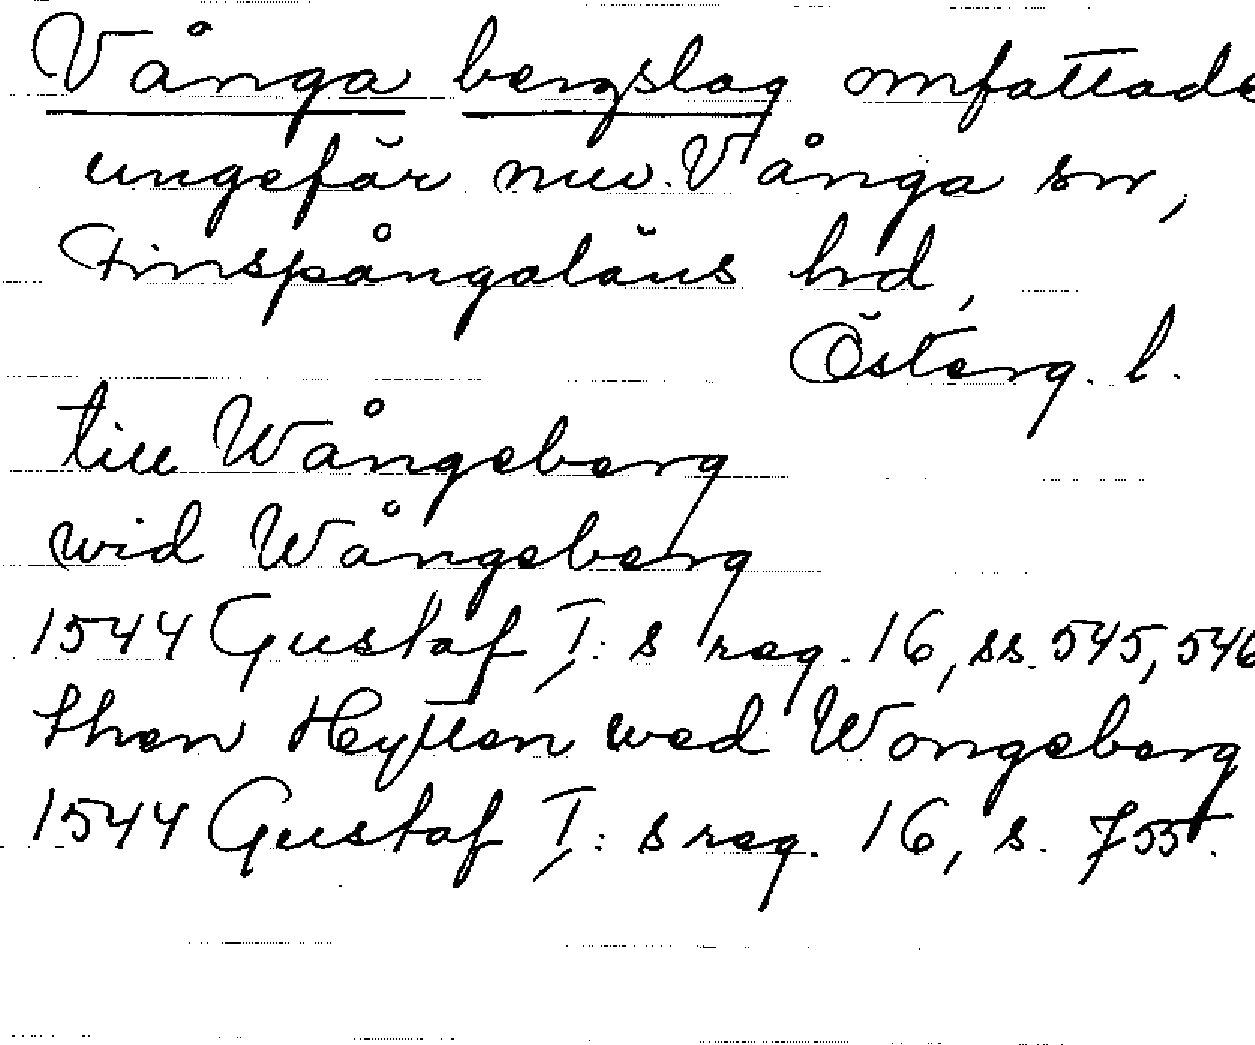 Vånga bergslag omfattade
ungefär nuv. Vånga sn,
Finspångaläns hd,
Österg. l.
till Wångeberg
wid Wångeberg
1544 Gustaf I:s reg. 16, ss. 545, 546
then Heytten wed Wongeberg
1544 Gustaf I:s reg. 16, s. 755.